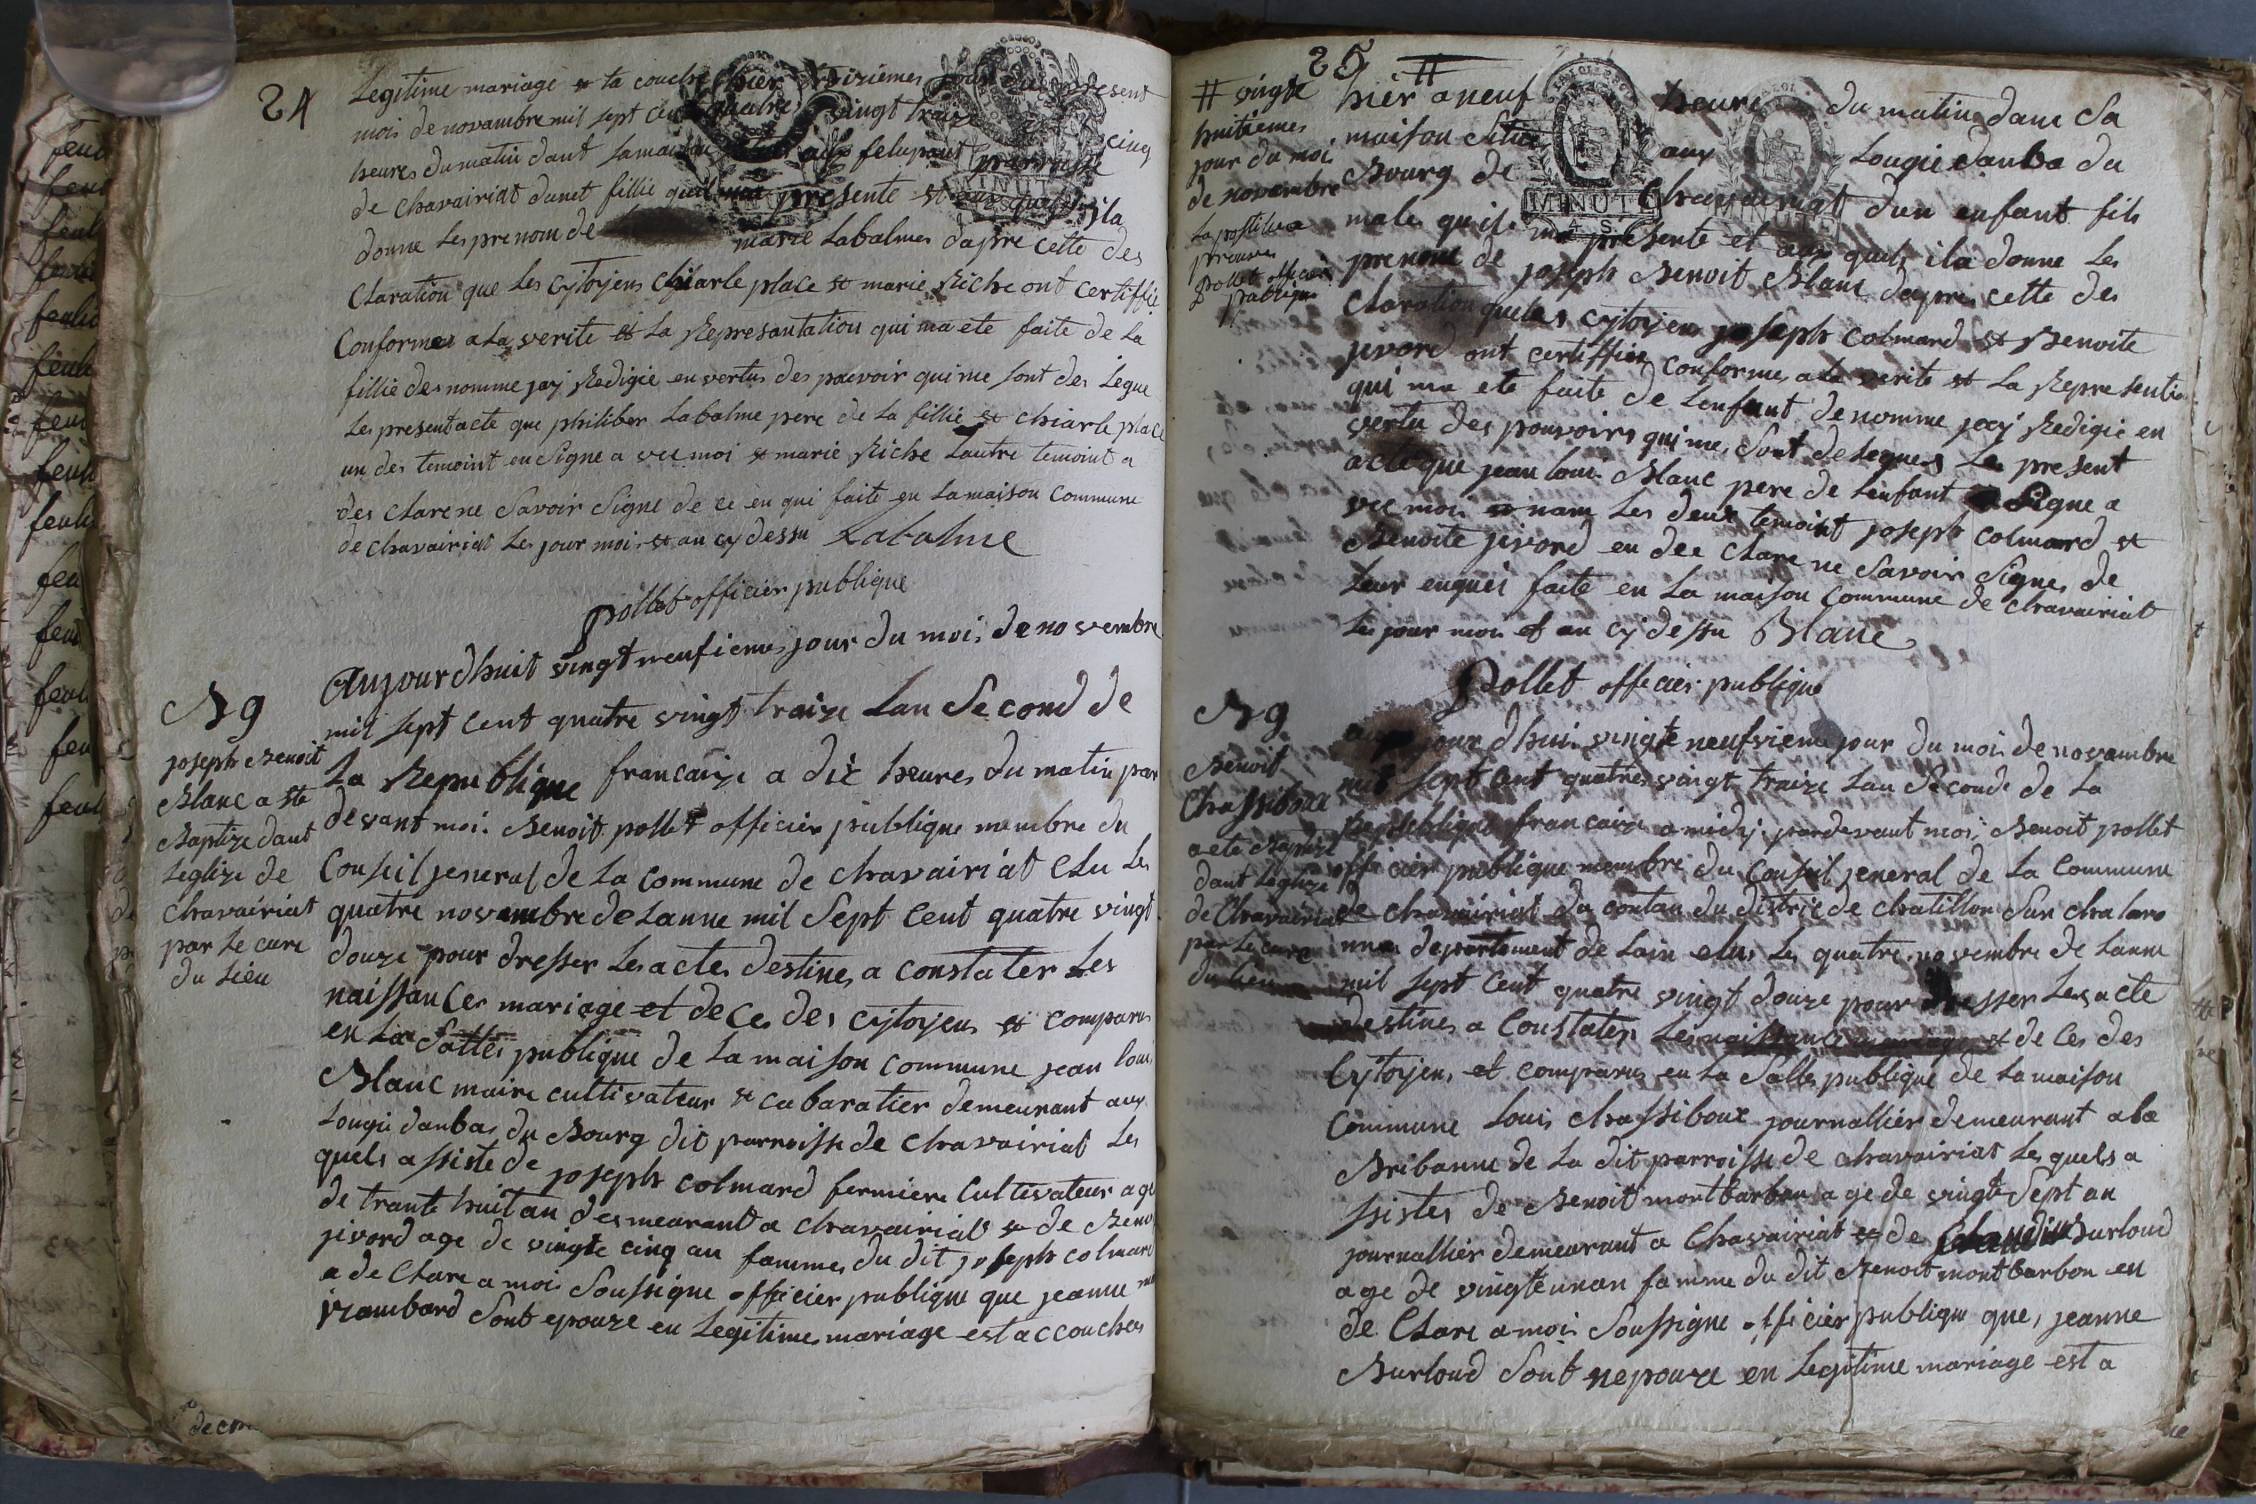 24
Legitime mariage et ta couche hier sizièmes jour du present
mois de novambre mil sept cent quatre vingt traize cinq
heures du matin dant Lamaison aux felupant parroisse
de chavairiat dunet fillie quil ma presente et aux quels ila
donne Les prenom de marie Labalmes dapre cette des
Claration que Les cytoyens Charle place et marie Riche ont certiffie
Conformes a La verite et La Represantation qui ma ete faite de La
fillie desnomme jay Redigie en vertus des pouvoir qui me sont des Legue
Les present acte que philiber Labalme pere de La fillie et chiarle place
un des temoint en Signe a vec moi et marie Riche Lautre temoint a
des Clare ne Savoir Signe de ce en qui faite en Lamaison Commune
de chavairiat Les jour mois et an cy dessu Labalme
pollet officier publique
N 9
joseph Benoit
Blanc a ete
Baptize dant
Leglize de
Chavairiat
par Le cure
du Lieu
Aujourdhuit vingt neufiemes jour du mois de novembre
mil sept cent quatre vingt traize Lan Second de
La Republique francaize a dix heures du matin par
devant moi Benoit pollet officier publique membre du
Conseil jeneral de La commune de chavairiat Elu Les
quatre novambre de Lanne mil Sept cent quatre vingt
douze pour dresser Les actes destines a constater Les
naissances mariage et de Ces des cytoyens et comparus
en La Salles publique de La maison commune jean louis
Blanc maire cultivateur et cabaratier demeurant aux
Lougie danbas du Bourg dit parroisse de chavairiat Les
quels assiste de joseph colmard fermiere Cultivateur age
de trante huit an desmeurant a chavairiat et de Benoite
jivord age de vingte cinq an fammes du dit joseph colmard
a de Clare a moi Soussigne officier publique que jeanne
Sont epouze en Legitimes mariage est accouches
25
# vingte
huitiemes
jour du moi
de novambre
La postille a
prouve
pollet officier
publique
hier a neuf heure du matin dant Sa
maison Situe aux Lougie danba du
Bourg de Chavairiat dun enfant fils
male quil ma presente et aux quels ila donne Les
prenom de joseph Benoit Blanc dapres cette des
Claration que Les cytoyens joseph colmard et Benoite
jivord ont certiffies conformes a La verite et La Represention
qui ma ete faite de Lenfant denomme jay Redigie en
vertu des pouvoirs qui me Sont de Legues Les present
acte que jean louis Blanc pere de Lenfant a Signe a
vec moi et nom Les deux temoint joseph colmard et
Benoite jivord en dec Clare ne Savoir Signes de
Leur enquis faite en La maison commune de chavairiat
Les jour mois et an cy dessu Blanc
Pollet officier publique
N 9
Benoit
Chassiboux
a ete Baptize
dant Leglize
de Chavairiat
par Le cure
du Lieu
aujourdhui vingte neufvieme jour du moi de novambre
mil sept cent quatres vingt traize Lan Seconde de La
Republique francaize a midy pardevant moi Benoit pollet
officier publique membre du Conseil jeneral de La Commune
de chavairiat du contan du distric de chatillon Sur chalaro
nne departement de Lain elus Les quatre novembre de Lanne
mil sept Cent quatre vingt douze pour dresser Les acte
destines a Constater Les naissance mariage et de Ces des
Cytoyens et comparus en La Salle publique de La maison
Commune Louis chassiboux journallier demeurant a La
Bribanne de La dit parroisse de chavairiat Les quels a
ssistes de Benoit montbarbon age de vingte Sept an
journallier demeurant a Chavairiat et de Claudine Burloud
age de vingte unan famme du dit Benoit montbarbon en
de Clare a moi Soussigne officier publique que, jeanne
Burloud Sont nepouze en Legitime mariage est a